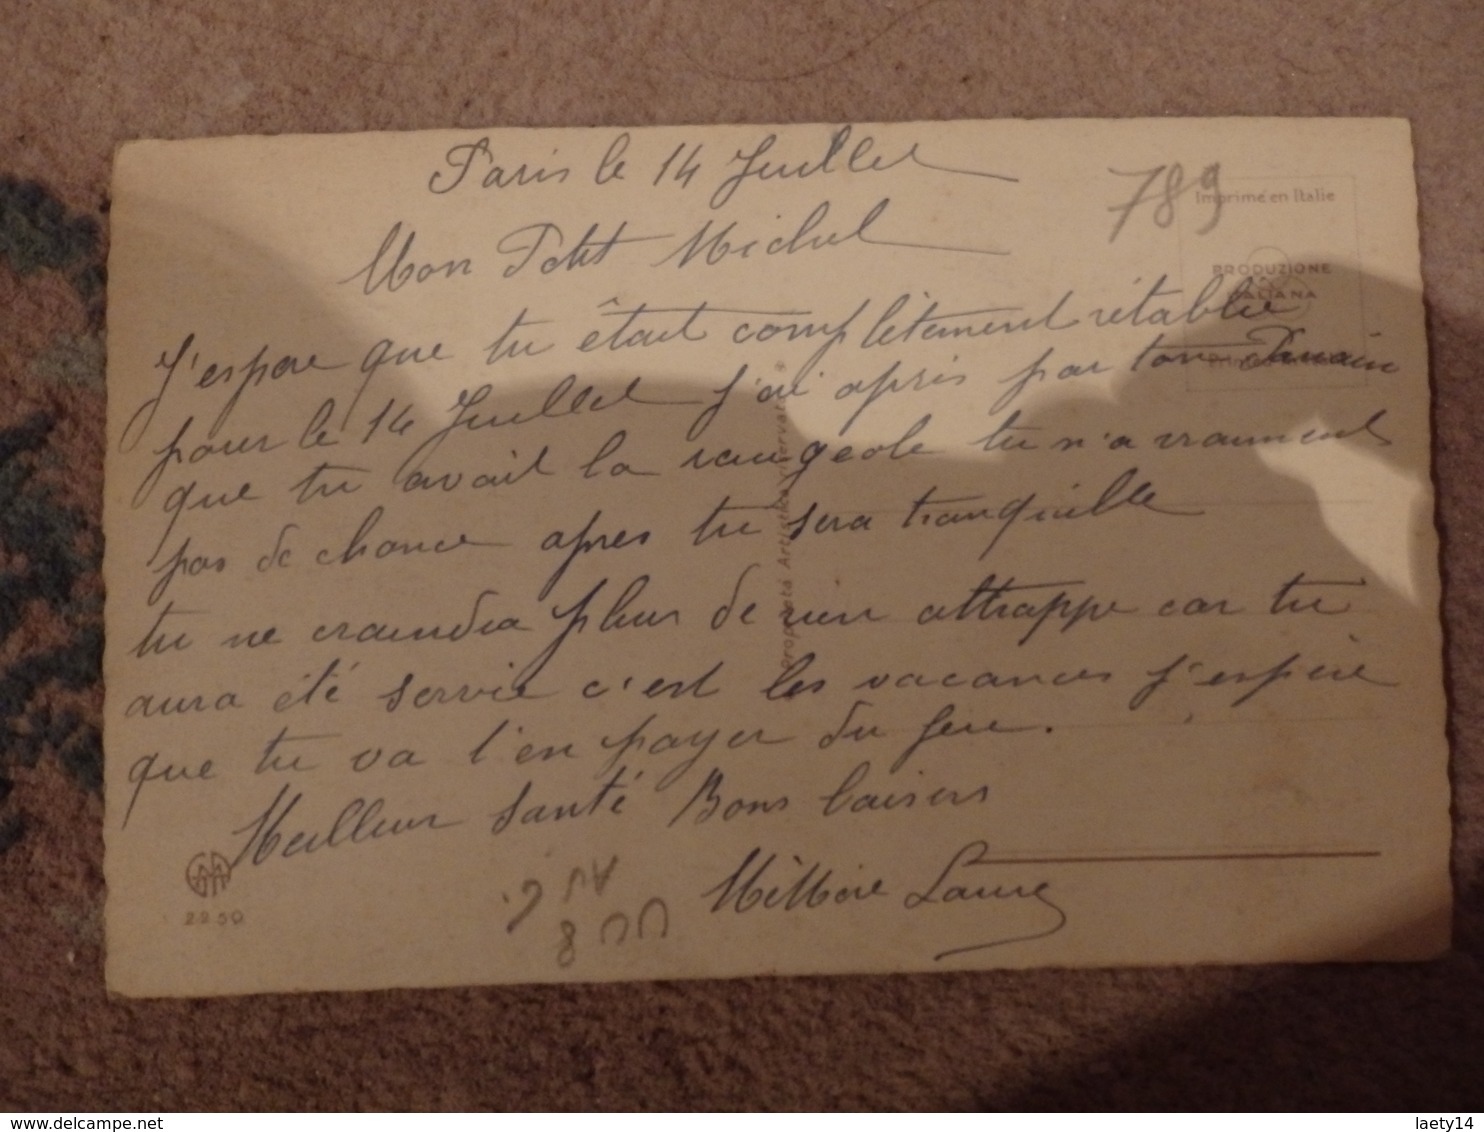 Paris le 14 Juillet
789
Imprimé en Italie
Mon Petit Michel
PRODUZIONE
ITALIANA
J'espère que tu était complètement rétablie
pour le 14 Juillet j'ai apris par ton Parrain
que tu avait la rougeole tu n'a vraiment
pas de chance apres tu sera tranquille
tu ne craindra plus de rien attrappe car tu
aura été servie c'est les vacances j'espère
que tu va t'en payer du feu.
Meilleur santé Bons baisers
Mémère Laure
Proprietà Artistica riservata
2250
800
laety14